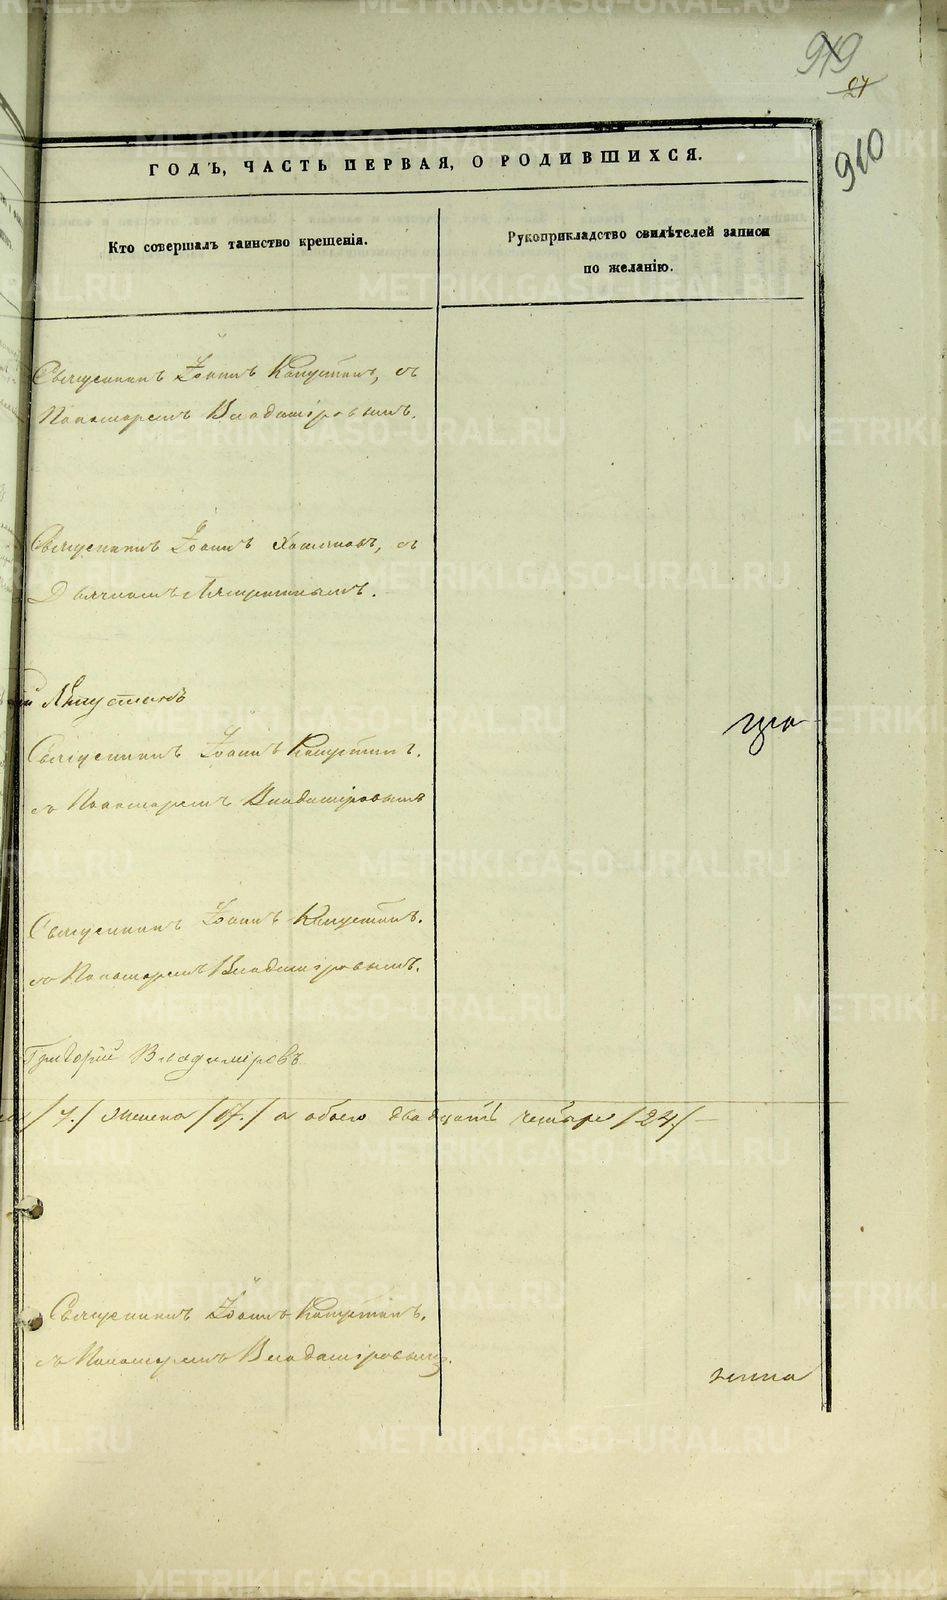 919
27
910
ГОДЪ, ЧАСТЬ ПЕРВАЯ, О РОДИВШИХСЯ.
Кто совершалъ таинство крещенія.
Рукоприкладство свидѣтелей записи
по желанію.
Священникъ Іоаннъ Капустинъ, съ
Пономаремъ Владиміровымъ.
Священникъ Іоаннъ съ
Дьячкомъ
Капустинъ
Священникъ Іоаннъ Капустинъ.
съ Пономаремъ Владиміровымъ
Священникъ Іоаннъ Капустинъ.
съ Пономаремъ Владиміровымъ.
Григорій Владиміровъ
/7./ женска /17./ а обоего двадцать четыре /24/ —
Священникъ Іоаннъ Капустинъ.
съ Пономаремъ Владиміровымъ.
METRIKI.GASO-URAL.RU